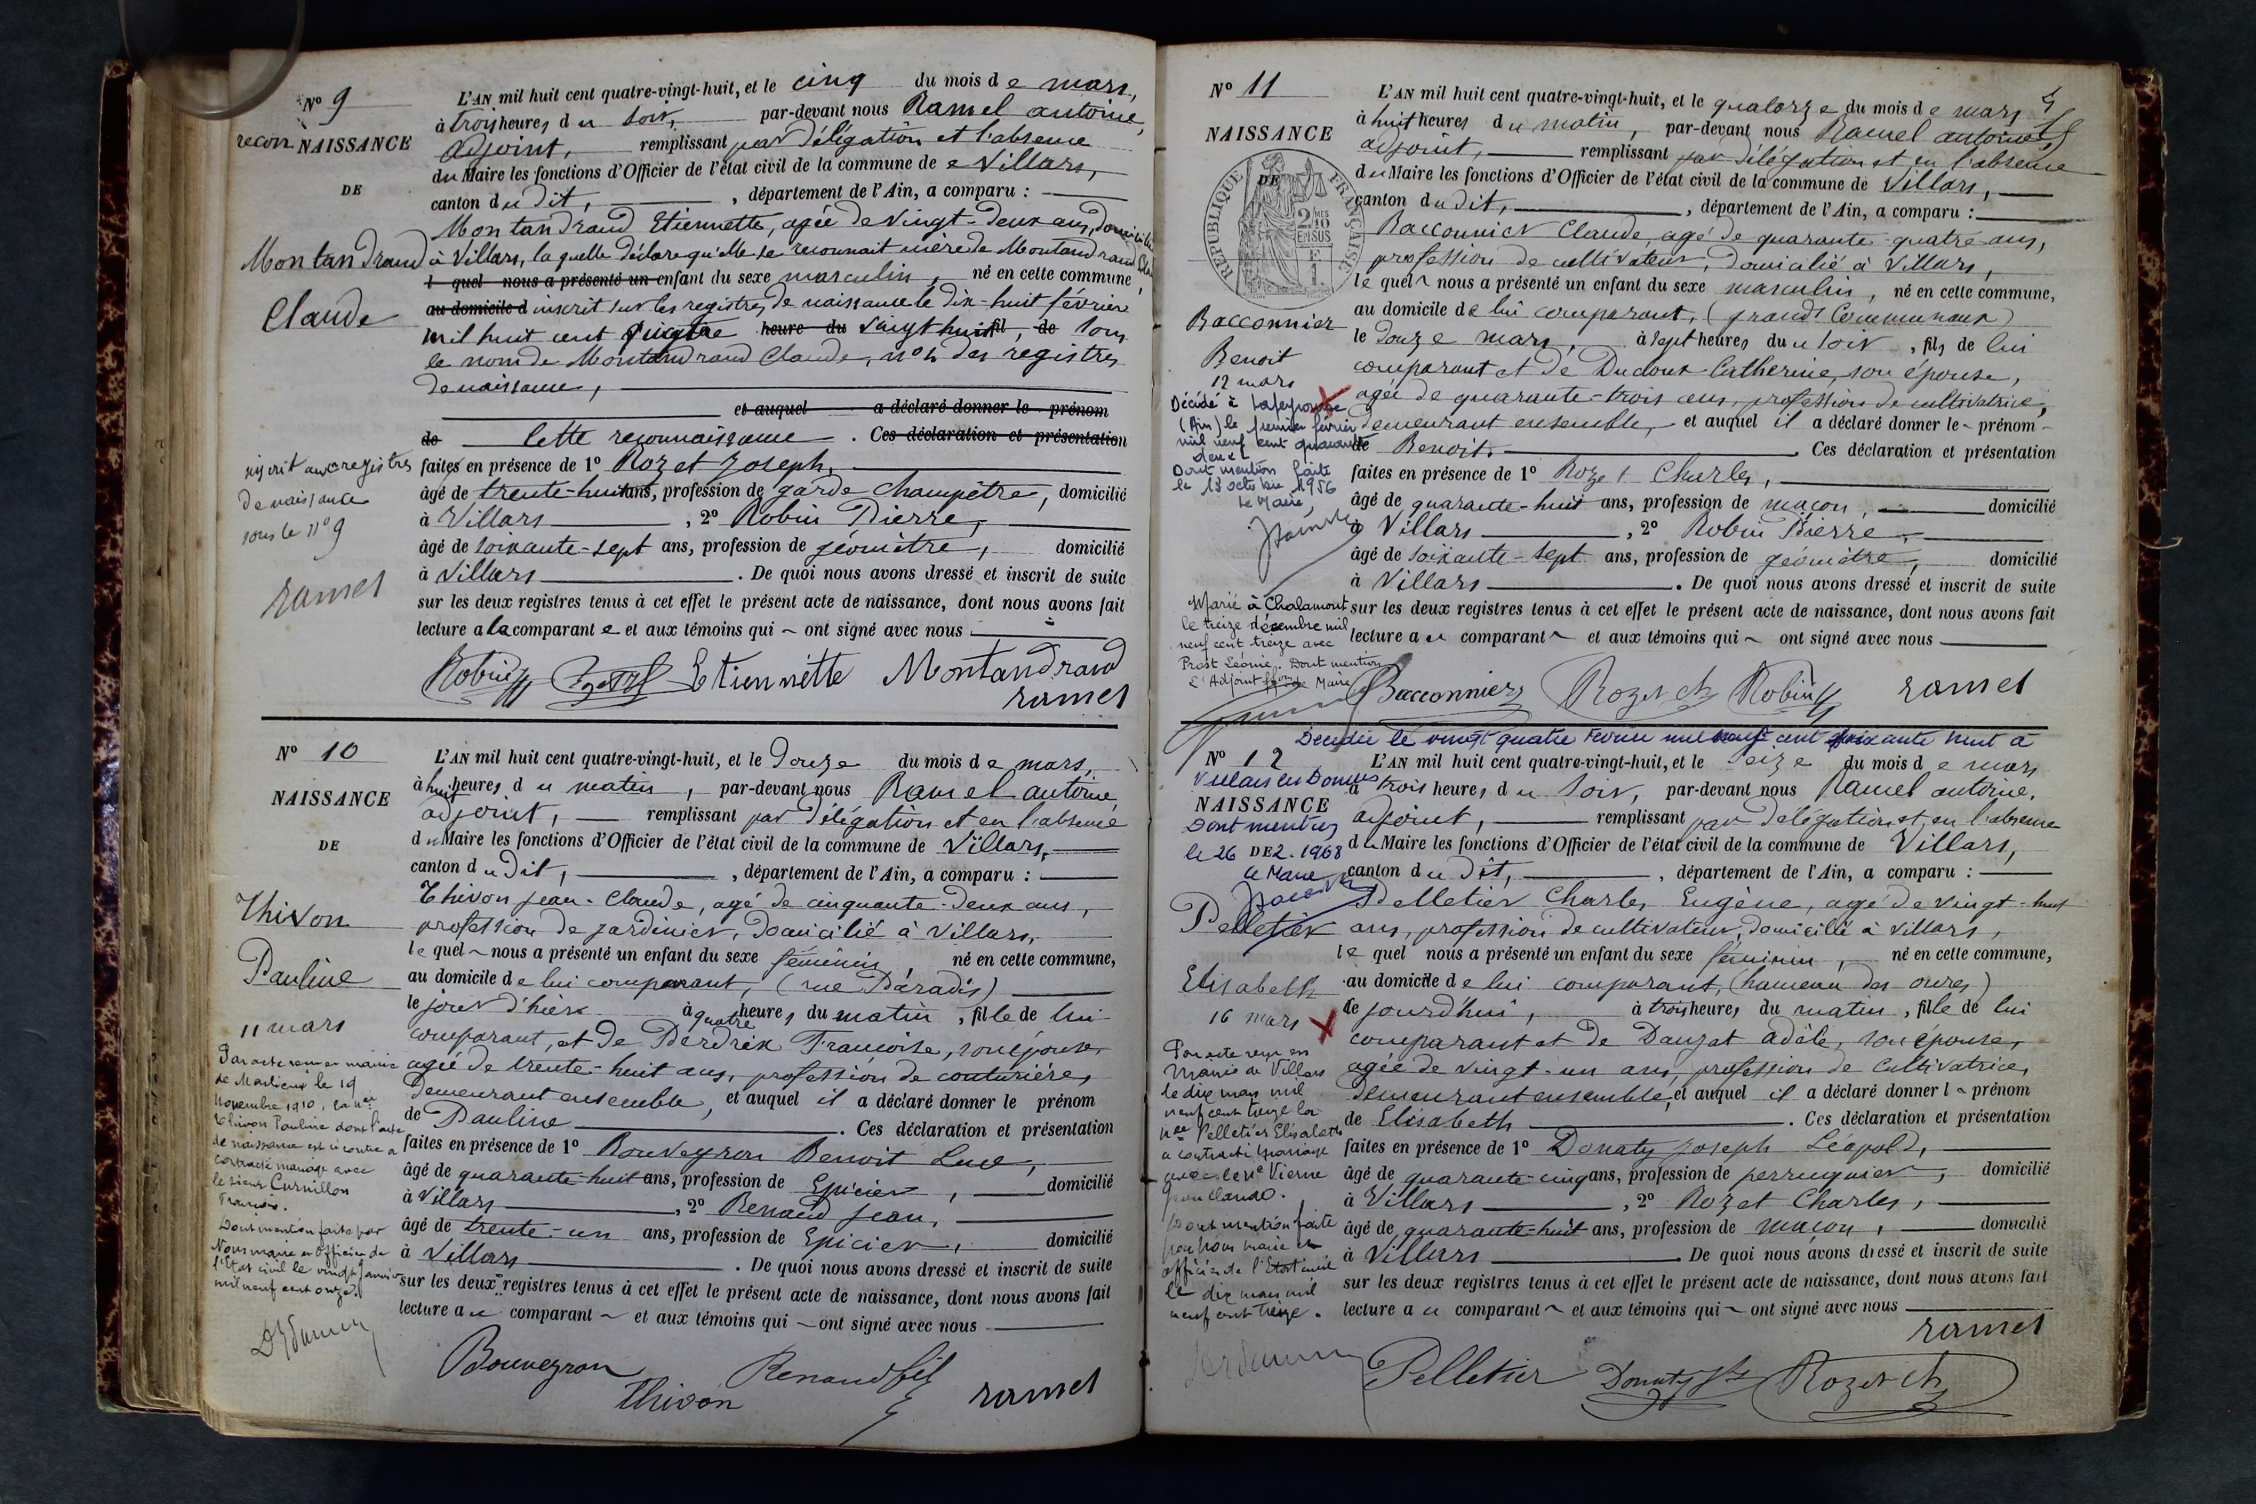 N° 9
reconNAISSANCE
DE
Montandraud
Claude
inscrit aux registres
de naissance
sous le n° 9
ramel
L'AN mil huit cent quatre-vingt-huit, et le cinq du mois de mars,
à trois heures du soir, par-devant nous Ramel antoine,
adjoint, remplissant par délégation et l'absence
du Maire les fonctions d'Officier de l'état civil de la commune de Villars,
canton du dit, , département de l'Ain, a comparu :
Montandraud Etiennette, agée de vingt-deux ans, domiciliée
à Villars, la quelle déclare qu'elle se reconnait mère de Montandraud
l quel nous a présenté un enfant du sexe masculin, né en cette commune,
au domicile d inscrit sur les registres de naissance le dix-huit février
mil huit cent quatre heure du vingt huit, fil de sous
le nom de Montandraud Claude, n° 4 des registres
de naissance,
et auquel a déclaré donner le prénom
de Cette reconnaissance. Ces déclaration et présentation
faites en présence de 1° Rozet Joseph,
âgé de trente-huit ans, profession de garde champêtre, domicilié
à Villars, 2° Robin Pierre,
âgé de soixante-sept ans, profession de géomètre, domicilié
à Villars. De quoi nous avons dressé et inscrit de suite
sur les deux registres tenus à cet effet le présent acte de naissance, dont nous avons fait
lecture a la comparante et aux témoins qui ont signé avec nous
Robin Etiennette Montandraud
ramel
N° 10
NAISSANCE
DE
Thivon
Pauline
11 mars
Par acte reçu en mairie
de Marlieux le 19
Novembre 1910, la née
Thivon Pauline dont l'acte
de naissance est ci contre a
contracté mariage avec
le sieur Curnillon
François.
Dont mention faite par
Nous maire et Officier de
l'Etat civil le vingt janvier
mil neuf cent onze.
L'AN mil huit cent quatre-vingt-huit, et le douze du mois de mars,
à huit heures du matin, par-devant nous Ramel antoine,
adjoint, remplissant par délégation et en l'absence
du Maire les fonctions d'Officier de l'état civil de la commune de Villars,
canton du dit, , département de l'Ain, a comparu :
Thivon Jean-Claude, agé de cinquante-deux ans,
profession de jardinier, domicilié à Villars,
le quel nous a présenté un enfant du sexe féminin, né en cette commune,
au domicile de lui comparant, (rue Paradis)
le jour d'hier à quatre heures du matin, fille de lui
comparant, et de Perdrix Françoise, son épouse,
agée de trente-huit ans, profession de couturière,
demeurant ensemble, et auquel il a déclaré donner le prénom
de Pauline. Ces déclaration et présentation
faites en présence de 1° Bouveyron Benoit Luc,
âgé de quarante-huit ans, profession de Epicier, domicilié
à Villars, 2° Renaud Jean,
âgé de trente-un ans, profession de Epicier, domicilié
à Villars. De quoi nous avons dressé et inscrit de suite
sur les deux registres tenus à cet effet le présent acte de naissance, dont nous avons fait
lecture au comparant et aux témoins qui ont signé avec nous
Bouveyron Renaud fils
Thivon ramel
N° 11
NAISSANCE
DE
RÉPUBLIQUE FRANÇAISE
2/10 EN SUS
Bacconnier
Benoit
12 mars
Décédé à
(Ain) le premier février
mil neuf cent quarante
deux
Dont mention faite
le 13 octobre 1956
Le Maire,
Marié à Chalamont
le treize décembre mil
neuf cent treize avec
Prost Léonie. Dont mention
L'Adjoint Maire
L'AN mil huit cent quatre-vingt-huit, et le quatorze du mois de mars
à huit heures du matin, par-devant nous Ramel antoine,
adjoint, remplissant par délégation et en l'absence
du Maire les fonctions d'Officier de l'état civil de la commune de Villars,
canton du dit, , département de l'Ain, a comparu :
Bacconnier Claude, agé de quarante-quatre ans,
profession de cultivateur, domicilié à Villars,
le quel nous a présenté un enfant du sexe masculin, né en cette commune,
au domicile de lui comparant, (grands Communaux)
le douze mars, à sept heures du soir, fils de lui
comparant et de Ducloux Catherine, son épouse,
agée de quarante-trois ans, profession de cultivatrice,
demeurant ensemble, et auquel il a déclaré donner le prénom
de Benoit. Ces déclaration et présentation
faites en présence de 1° Rozet Charles,
âgé de quarante-huit ans, profession de maçon, domicilié
à Villars, 2° Robin Pierre,
âgé de soixante-sept ans, profession de géomètre, domicilié
à Villars. De quoi nous avons dressé et inscrit de suite
sur les deux registres tenus à cet effet le présent acte de naissance, dont nous avons fait
lecture au comparant et aux témoins qui ont signé avec nous
Bacconnier Rozet ch Robin ramel
Décédée le vingt quatre Février mil neuf cent soixante huit à
Villars les Dombes
Dont mention
le 26 2. 1968
Le Maire
N° 12
NAISSANCE
DE
Pelletier
Elisabeth
16 mars
Par acte reçu en
Mairie de Villars
le dix mars mil
neuf cent treize la
née Pelletier Elisabeth
a contracté mariage
avec le Vierne
Dont mention faite
par nous maire et
officier de l'Etat civil
le dix mars mil
neuf cent treize.
L'AN mil huit cent quatre-vingt-huit, et le seize du mois de mars
à trois heures du soir, par-devant nous Ramel antoine,
adjoint, remplissant par délégation et en l'absence
du Maire les fonctions d'Officier de l'état civil de la commune de Villars,
canton du dit, , département de l'Ain, a comparu :
Pelletier Charles Eugène, agé de vingt-huit
ans, profession de cultivateur, domicilié à Villars,
le quel nous a présenté un enfant du sexe féminin, né en cette commune,
au domicile de lui comparant, (hameau des oures)
le jourd'hui, à trois heures du matin, fille de lui
comparant et de Dauzat adèle, son épouse,
agée de vingt-un ans, profession de cultivatrice,
demeurant ensemble, et auquel il a déclaré donner l prénom
de Elisabeth. Ces déclaration et présentation
faites en présence de 1° Donaty Joseph Léopold,
âgé de quarante-cinq ans, profession de perruquier, domicilié
à Villars, 2° Rozet Charles,
âgé de quarante-huit ans, profession de maçon, domicilié
à Villars. De quoi nous avons dressé et inscrit de suite
sur les deux registres tenus à cet effet le présent acte de naissance, dont nous avons fait
lecture au comparant et aux témoins qui ont signé avec nous
ramel
Pelletier Donaty Rozet ch